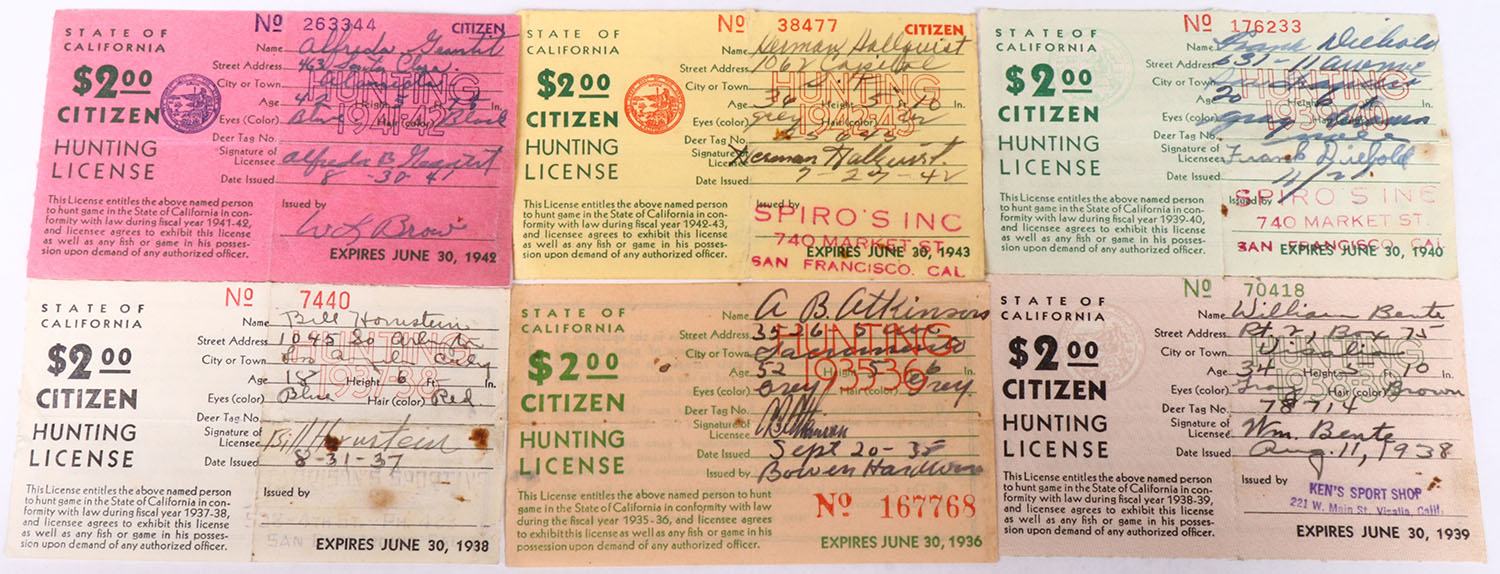 STATE OF
CALIFORNIA
$2.00
CITIZEN
HUNTING
LICENSE
This License entitles the above named person
to hunt game in the State of California in con-
formity with law during fiscal year 1941-42,
and licensee agrees to exhibit this license
as well as any fish or game in his posses-
sion upon demand of any authorized officer.
No 263344 CITIZEN
HUNTING
1941-42
Name Alfreda
Street Address 463 Santa Clara
City or Town
Age 42 Height 5 Ft. In.
Eyes (color) Blue Hair (color) Black
Deer Tag No.
Signature of
Licensee Alfreda B
Date Issued 8-30-41
Issued by
W L Brow
EXPIRES JUNE 30, 1942
STATE OF
CALIFORNIA
$2.00
CITIZEN
HUNTING
LICENSE
This License entitles the above named person
to hunt game in the State of California in con-
formity with law during fiscal year 1942-43,
and licensee agrees to exhibit this license
as well as any fish or game in his posses-
sion upon demand of any authorized officer.
No 38477 CITIZEN
HUNTING
1942-43
Name Herman Hallquist
Street Address 1062 Capitol
City or Town
Age 36 Height 5 10
Eyes (color) Grey Hair (color)
Deer Tag No.
Signature of
Licensee Herman Hallquist
Date Issued 7-27-42
Issued by
SPIRO'S INC
740 MARKET ST.
SAN FRANCISCO, CAL
EXPIRES JUNE 30, 1943
STATE OF
CALIFORNIA
$2.00
CITIZEN
HUNTING
LICENSE
This License entitles the above named person
to hunt game in the State of California in con-
formity with law during fiscal year 1939-40,
and licensee agrees to exhibit this license
as well as any fish or game in his posses-
sion upon demand of any authorized officer.
No 176233
HUNTING
1939-40
Name Frank Diebold
Street Address 631-11 avenue
City or Town
Age 20 Height 6 In.
Eyes (color) Gray Hair (color) Brown
Deer Tag No.
Signature of
Licensee Frank Diebold
Date Issued
Issued by
SPIRO'S INC
740 MARKET ST.
SAN FRANCISCO, CAL
EXPIRES JUNE 30, 1940
STATE OF
CALIFORNIA
$2.00
CITIZEN
HUNTING
LICENSE
This License entitles the above named person
to hunt game in the State of California in con-
formity with law during fiscal year 1937-38,
and licensee agrees to exhibit this license
as well as any fish or game in his posses-
sion upon demand of any authorized officer.
No 7440
HUNTING
1937-38
Name Bill Hornstein
Street Address 1045 So
City or Town City
Age 18 Height 6 Ft. In.
Eyes (color) Blue Hair (color) Red
Deer Tag No.
Signature of
Licensee Bill Hornstein
Date Issued 8-31-37
Issued by
EXPIRES JUNE 30, 1938
STATE OF
CALIFORNIA
$2.00
CITIZEN
HUNTING
LICENSE
This License entitles the above named person to hunt
game in the State of California in conformity with law
during the fiscal year 1935-36, and licensee agrees to
exhibit this license as well as any fish or game in his
possession upon demand of any authorized officer.
HUNTING
1935-36
Name A B Atkinson
Street Address 3536 5 ave
City or Town Sacramento
Age 52 Height 5 6
Eyes (color) Grey Hair (color) Grey
Deer Tag No.
Signature of
Licensee
Date Issued Sept 20-35
Issued by Bowen Hardware
No 167768
EXPIRES JUNE 30, 1936
STATE OF
CALIFORNIA
$2.00
CITIZEN
HUNTING
LICENSE
This License entitles the above named person
to hunt game in the State of California in con-
formity with law during fiscal year 1938-39,
and licensee agrees to exhibit this license
as well as any fish or game in his posses-
sion upon demand of any authorized officer.
No 70418
HUNTING
1938-39
Name William Bente
Street Address Rt. 2, Box 75
City or Town Visalia
Age 34 Height 5 10
Eyes (color) Gray Hair (color) Brown
Deer Tag No. 78714
Signature of
Licensee Wm. Bente
Date Issued Aug. 11, 1938
Issued by
KEN'S SPORT SHOP
221 W. Main St. Visalia, Calif.
EXPIRES JUNE 30, 1939